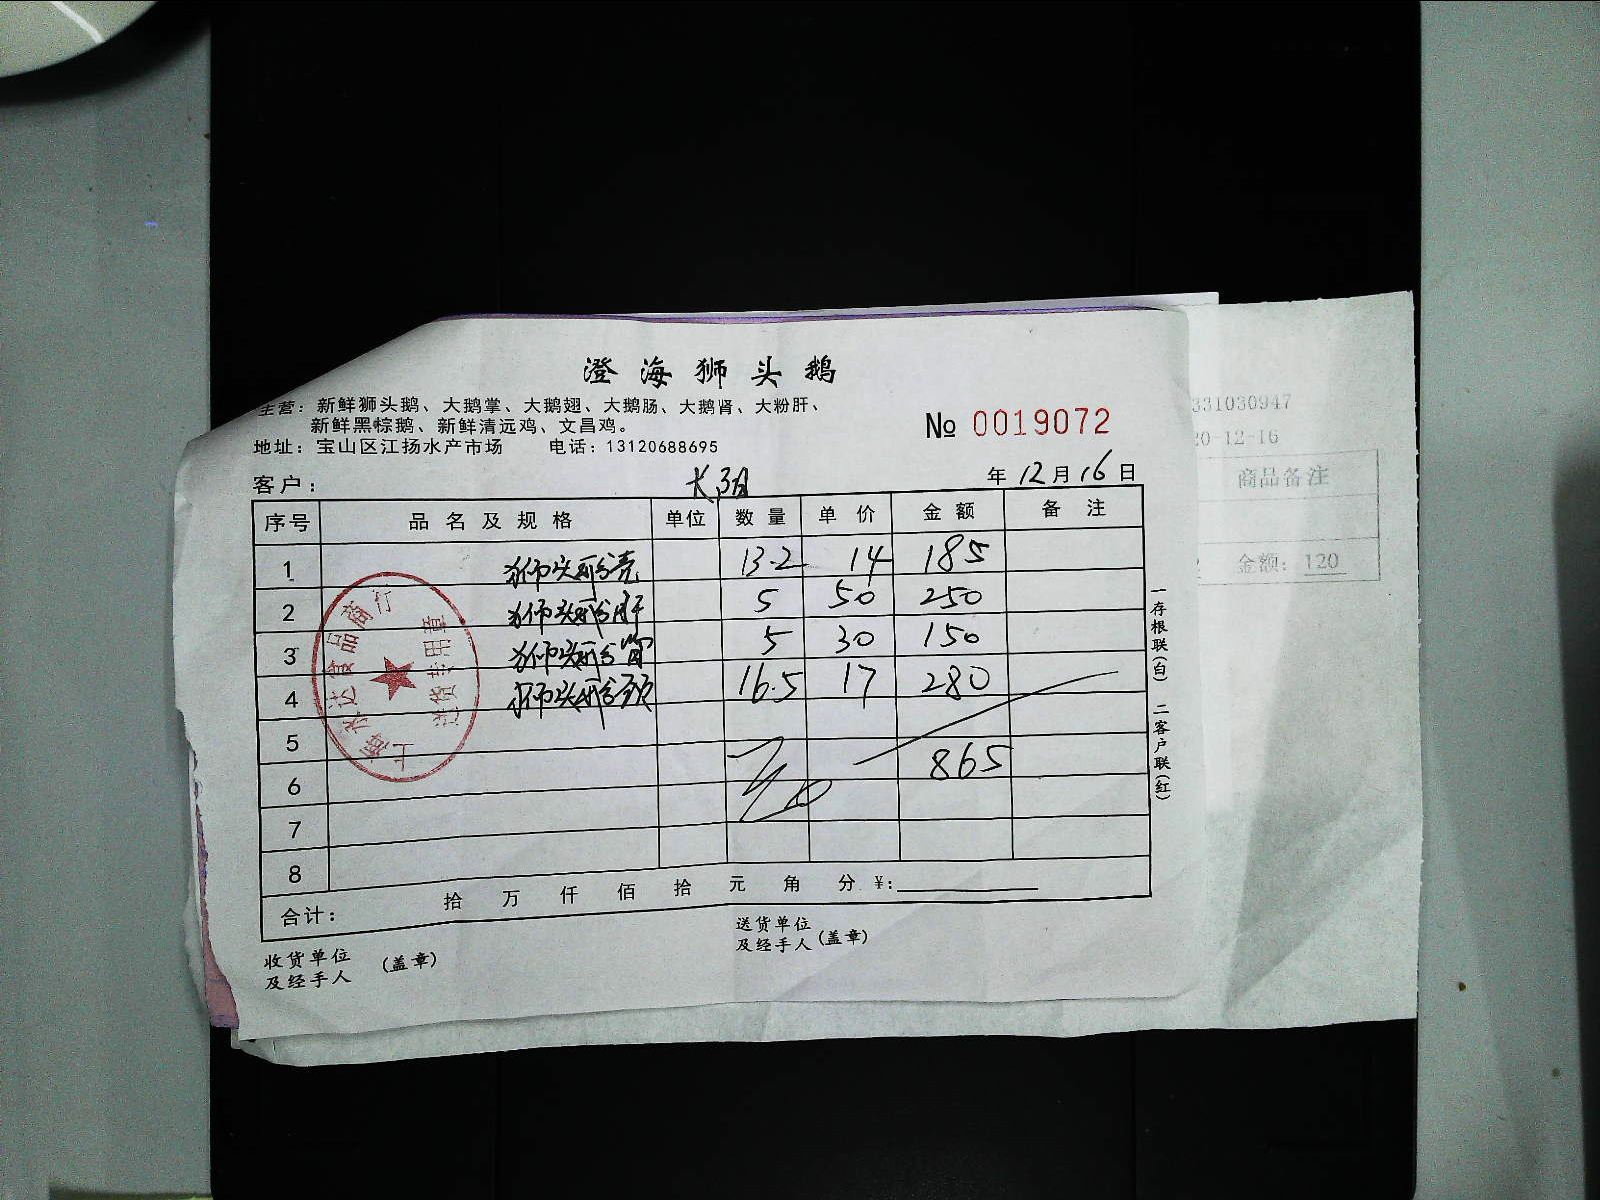 澄海狮头鹅
主营：新鲜狮头鹅、大鹅掌、大鹅翅、大鹅肠、大鹅肾、大粉肝、
新鲜黑棕鹅、新鲜清远鸡、文昌鸡。
地址：宝山区江扬水产市场 电话：13120688695
№ 0019072
客户： 年 12 月 16 日
序号 品名及规格 单位 数量 单价 金额 备注
1 狮头鹅壳 13.2 14 185
2 狮头鹅肝 5 50 250
3 狮头鹅肾 5 30 150
4 狮头鹅头 16.5 17 280
5
6 865
7
8
合计： 拾 万 仟 佰 拾 元 角 分 ¥：
收货单位
及经手人 (盖章)
送货单位
及经手人 (盖章)
一存根联(白) 二客户联(红)
食品商行
送货专用章
331030947
20-12-16
商品备注
金额：120